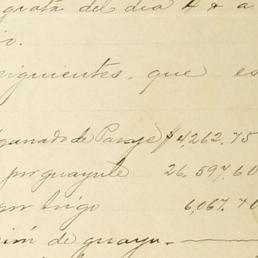 grata del dia 4 & a
io.
siguientes, que es
ganado de Pasaje $ 4,262.75
por guayule 26,597.60
por trigo 6,167.40
ción de guayu-